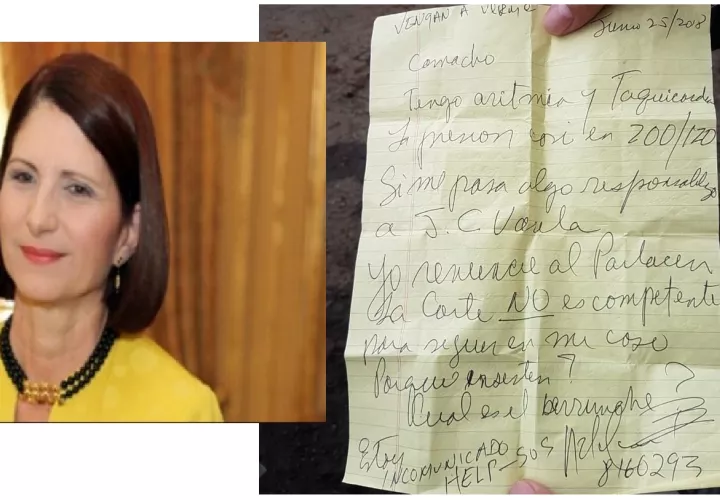 VENGAN A VERME
Junio 25/2018
Camacho
Tengo aritmia y Taquicardia
La presion casi en 200/120
Si me pasa algo responsabilizo
a J.C Varela
Yo renuncie al Parlacen
La Corte NO es competente
para seguir en mi caso
Porque insisten?
Cual es el berrinche?
Estoy
INCOMUNICADO
HELP-SOS
8460293